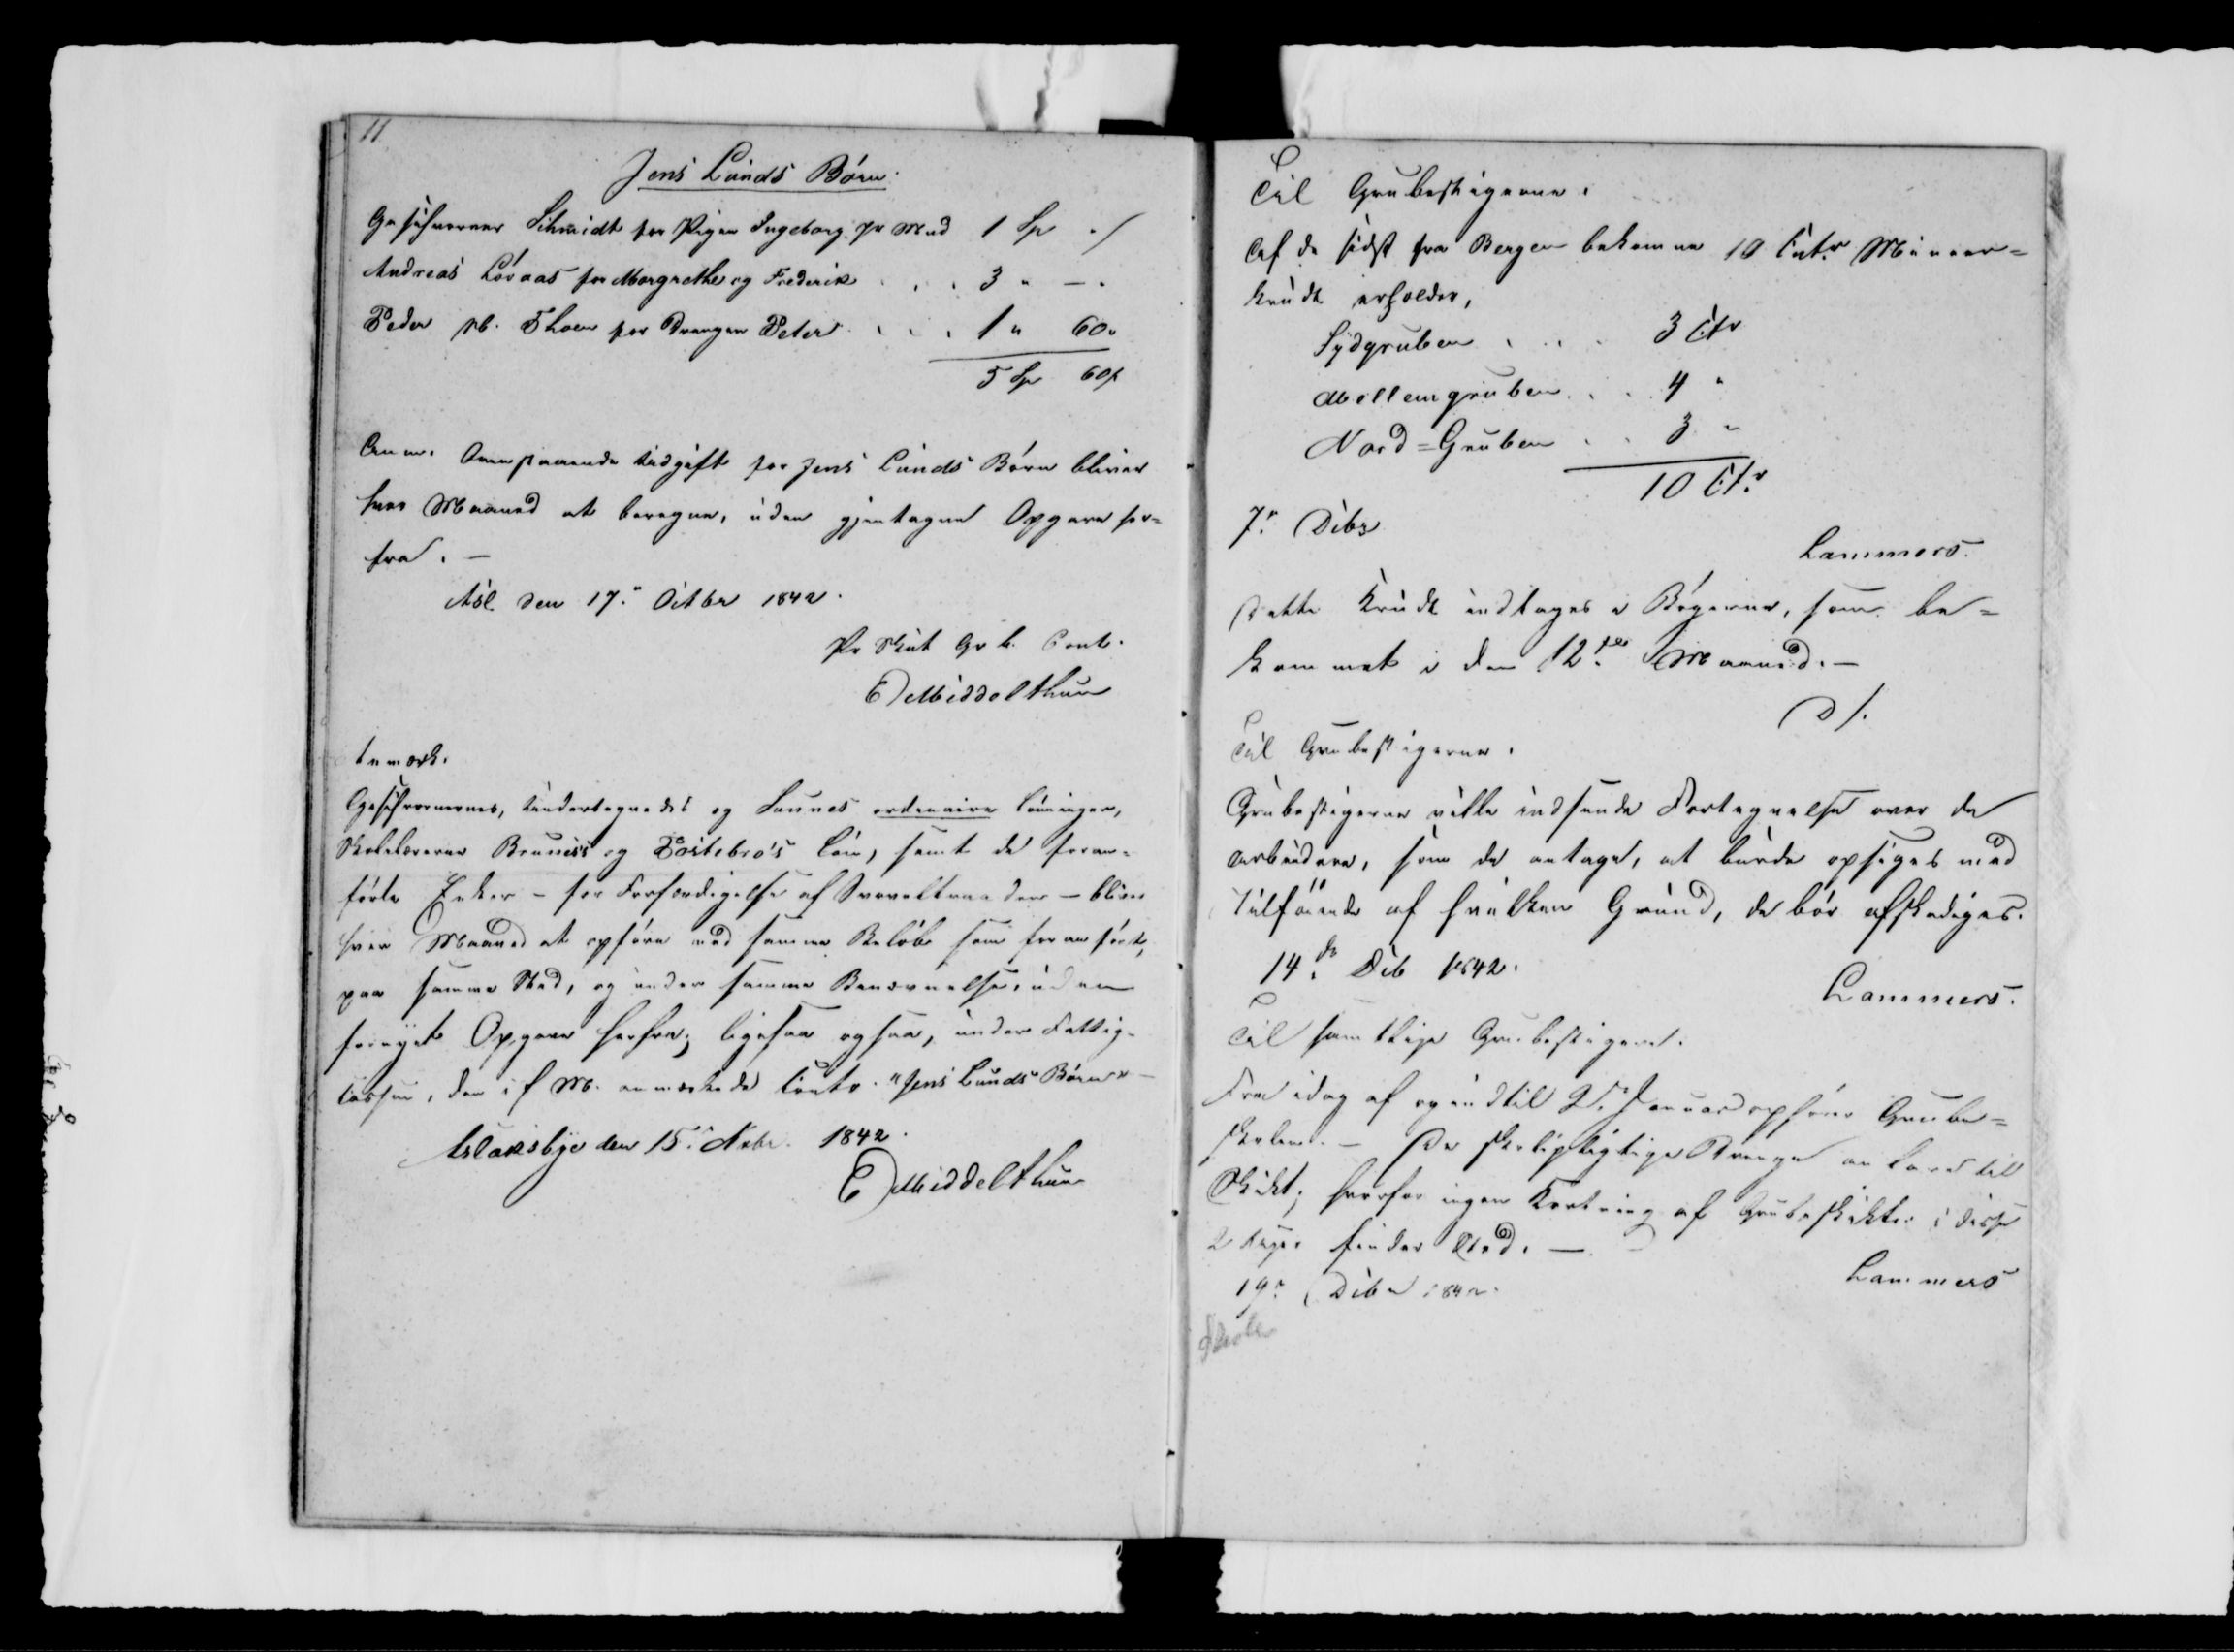 11
Jens Lunds Børn.
Geschworner Schmidt for Pigen Ingeborg pr Mnd 1 Sp
Andreas Løvaas for Margrethe og Frederik . . . 3 " — "
Peder M. Thoen for Drengen Peter . . . 1 " 60 "
5 Sp 60 ß
Anm. Ovenstaaende Udgift for Jens Lunds Børn bliver
hver Maaned at beregne, uden gjentagne Opgave her=
fra. —
Asl. den 17. Octbr 1842.
Middelthun
Anmærk.
Geschwornernes, Undertegnedes og Sunnes ordenaire Lønninger,
Skolelærerne Bruness og Løn, samt de foran=
førte Enker – for Forfærdigelse af Svovltraaden – bliver
hver Maaned at opføre med samme Beløb som foran ført,
paa samme Sted, og under samme Benævnelse, uden
fornyet Opgave herfra; ligesaa ogsaa, under Fattig-
Cassen, den i f. M. anmærkede Conto. "Jens Lunds Børn" —
Aslaksbye den 15. Novbr. 1842.
Middelthun
Til Grubestigerne.
Af de sidst fra Bergen bekomne 10 Cntr Mineer=
krudt erholder,
Sydgruben . . . 3 Ctr
Mellemgruben . . 4 "
Nord=Gruben . . 3 "
10 Ctr
7. Dcbr
Lammers.
Dette Krudt indtages i Bøgerne, som be=
kommet i den 12te Maaned. —
D/.
Til Grubestigerne.
Grubestigerne ville indsende Fortegnelse over de
Arbeidere, som de antage, at burde opsiges med
Tilføiende af hvilken Grund, de bør afskediges.
14de Dcb 1842.
Lammers.
Til samtlige Grubestigere.
Fra idag af og indtil 2. Januar ophører Grube=
skolen. — De skolepligtige Drenge til
Skikt; hvorfor ingen Kortning af Grubeskikter i disse
2 Uger finder Sted. —
19. Dcbr 1842.
Lammers
Skole